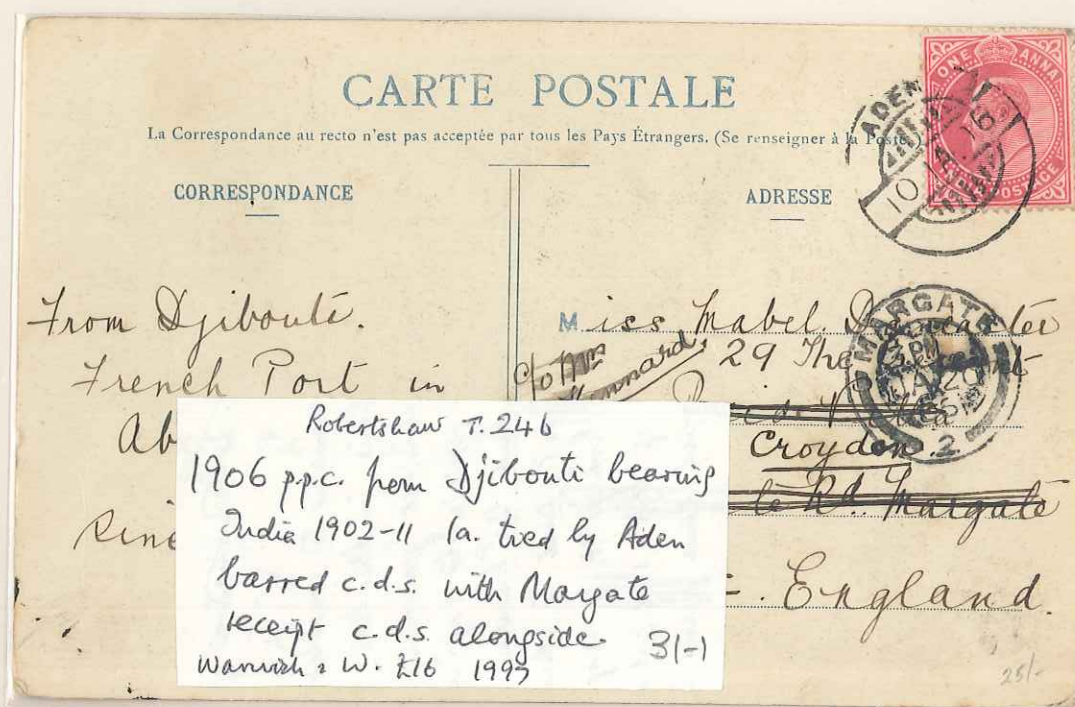 CARTE POSTALE
La Correspondance au recto n'est pas acceptée par tous les Pays Étrangers. (Se renseigner à la Poste)
CORRESPONDANCE
ADRESSE
ONE ANNA
POSTAGE
ADEN
10
From Djibouti.
French Port in
Ab
Miss Mabel
29 The
c/o Mrs
Croydon.
Rd. Margate
England.
MARGATE
JA 20
2
Robertshaw T. 24b
1906 p.p.c. from Djibouti bearing
India 1902-11 1a. tied by Aden
barred c.d.s. with Margate
receipt c.d.s. alongside.
3/-
Warwick & W. £16 1993
25/-